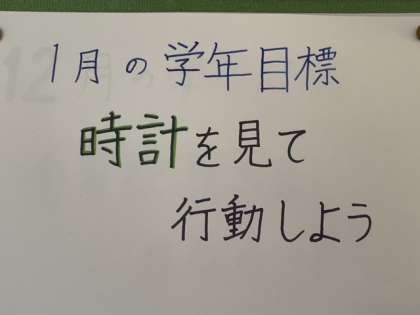 1月の学年目標
時計を見て
行動しよう